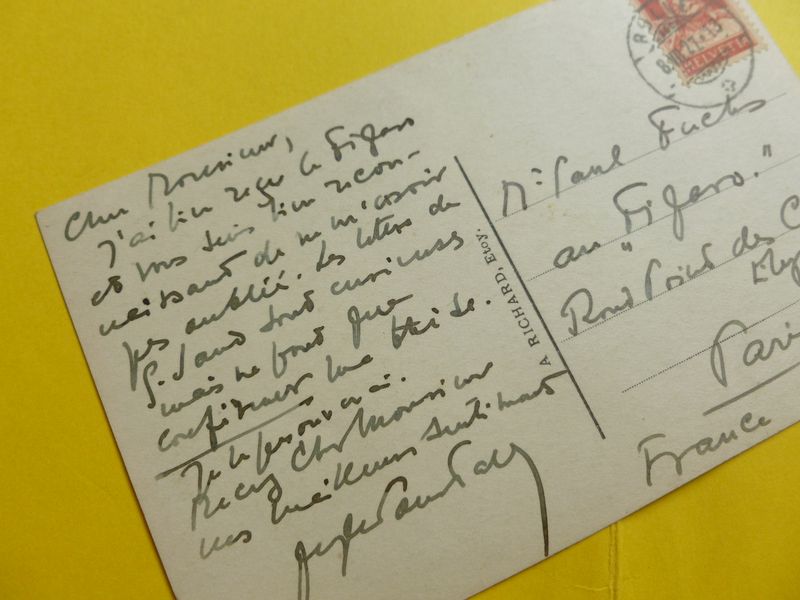 Cher Monsieur,
J'ai bien reçu le Figaro
et vous suis bien recon-
naissant de ne m'avoir
pas oublié. Les lettres de
G. Sand sont curieuses
mais ne font que
confirmer ma thèse.
Je le
Recevez Cher Monsieur
mes meilleurs sentiments
A RICHARD, Etoy.
HELVETIA
Mr Paul Fuchs
au "Figaro."
Rond Point des C
Ely
Paris
France